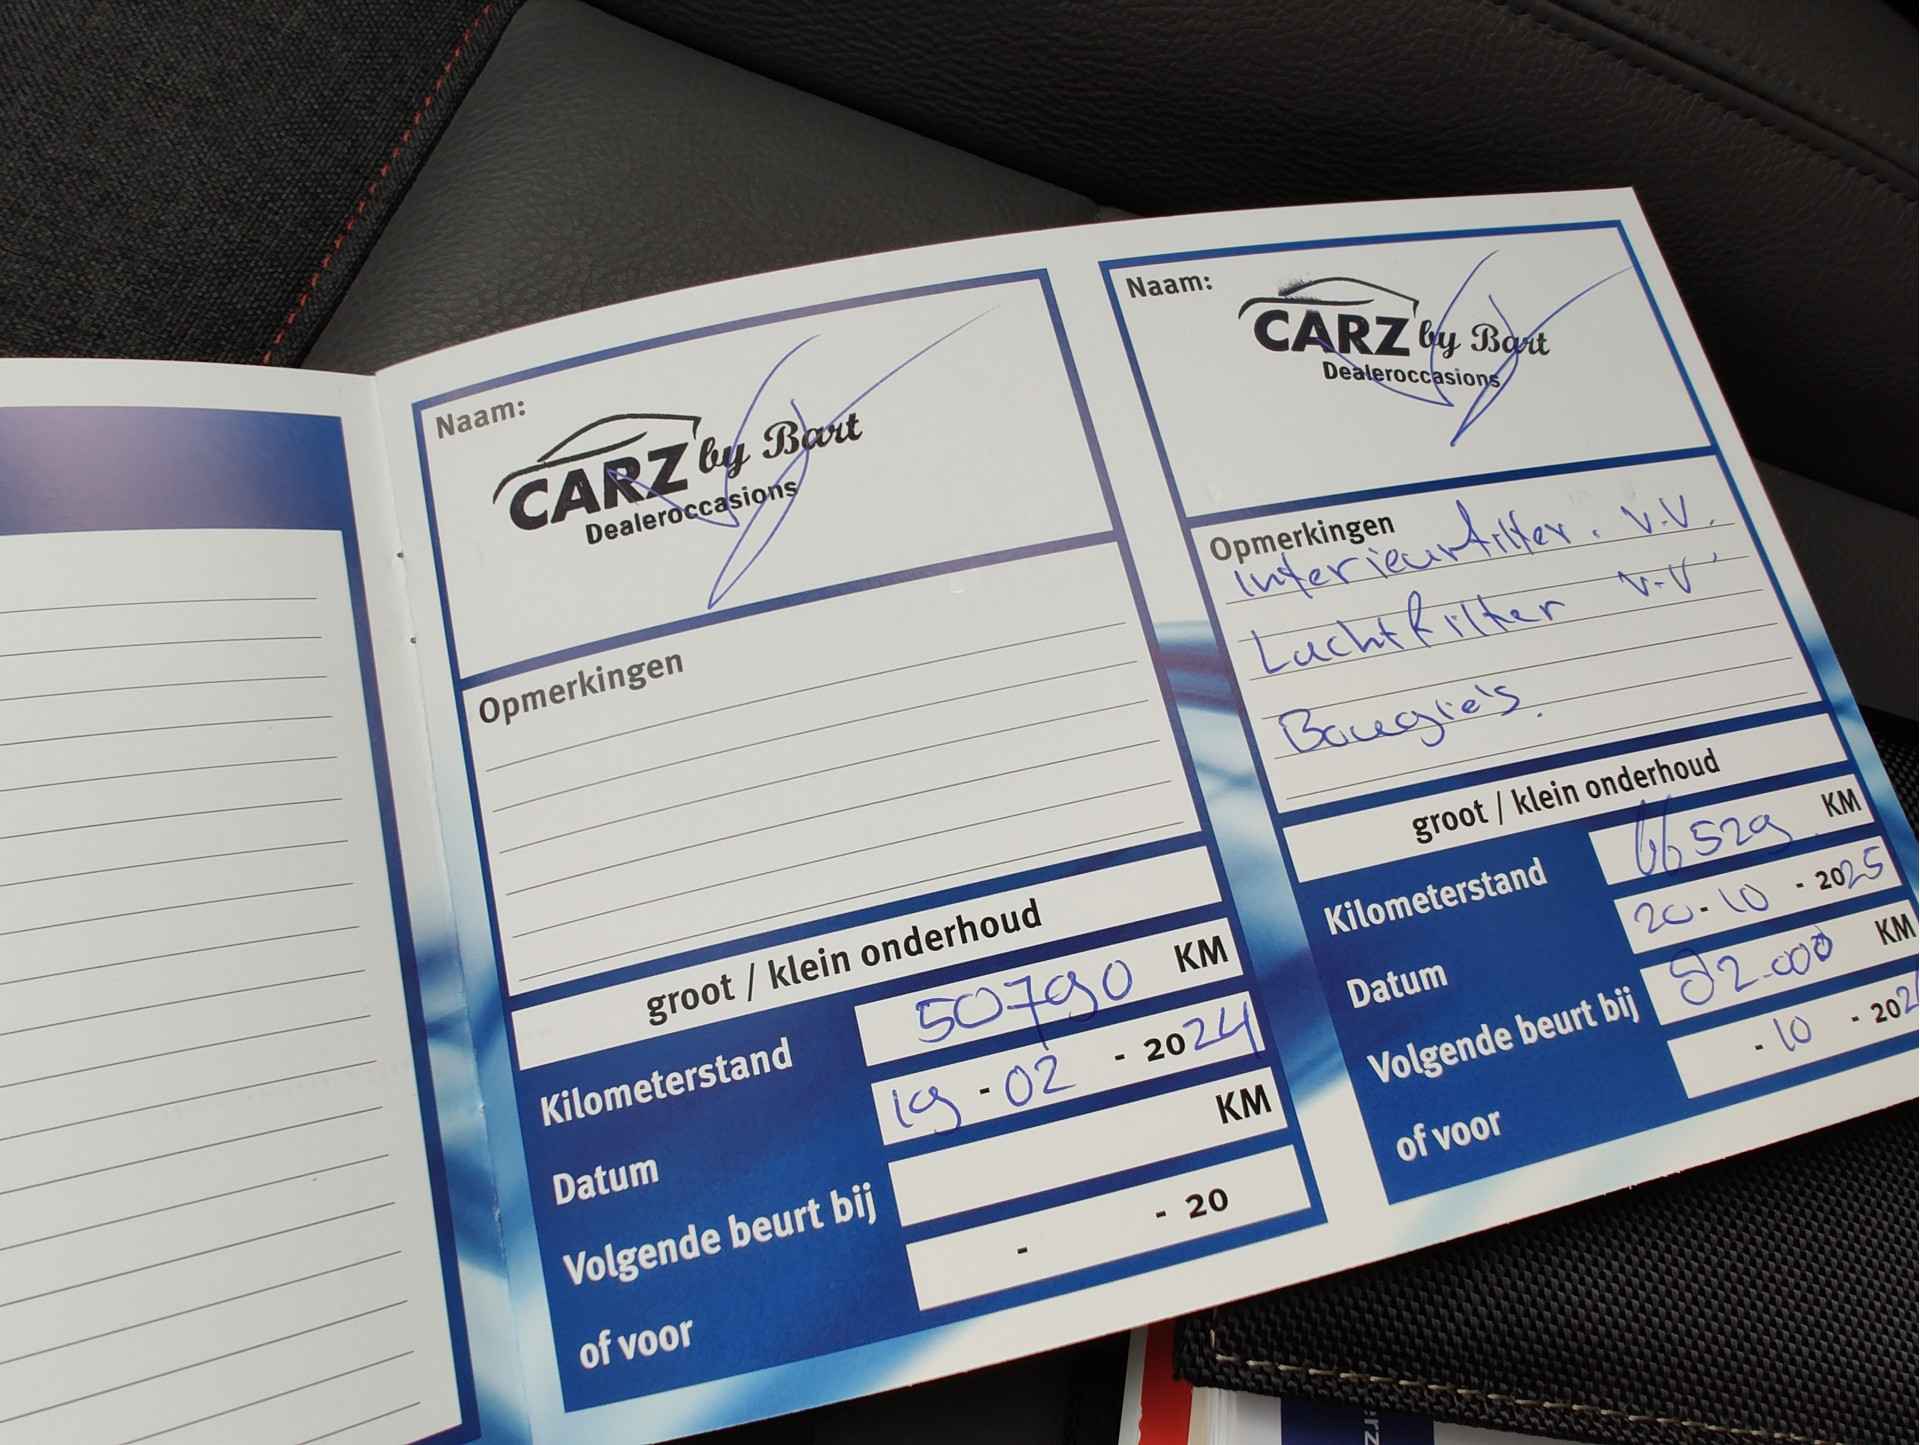 Naam:
CARZ by Bart
Dealeroccasions
Opmerkingen
groot / klein onderhoud
Kilometerstand 50790 KM
Datum 19 - 02 - 2024
Volgende beurt bij KM
of voor - - 20
Naam:
CARZ by Bart
Dealeroccasions
Opmerkingen
Interieurfilter. v.v.
Luchtfilter v.v
Bougie's.
groot / klein onderhoud
Kilometerstand 66529 KM
Datum 20 - 10 - 2025
Volgende beurt bij 82.000 KM
of voor - 10 - 202